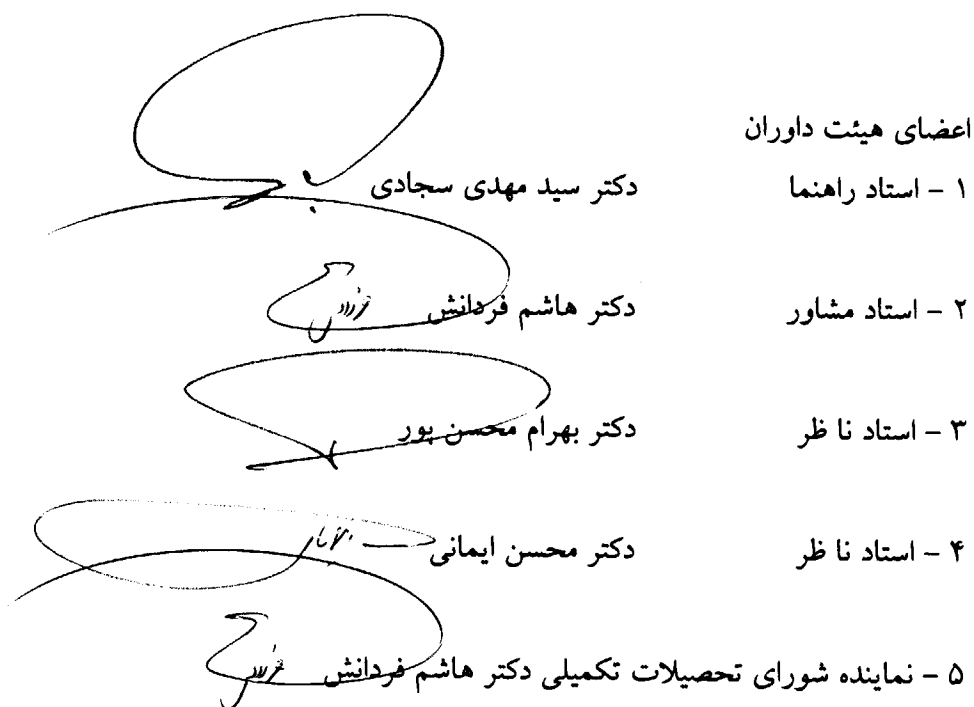 اعضای هیئت داوران
۱ - استاد راهنما دکتر سید مهدی سجادی
۲ - استاد مشاور دکتر هاشم فردانش
۳ - استاد نا ظر دکتر بهرام محسن پور
۴ - استاد نا ظر دکتر محسن ایمانی
۵ - نماینده شورای تحصیلات تکمیلی دکتر هاشم فردانش